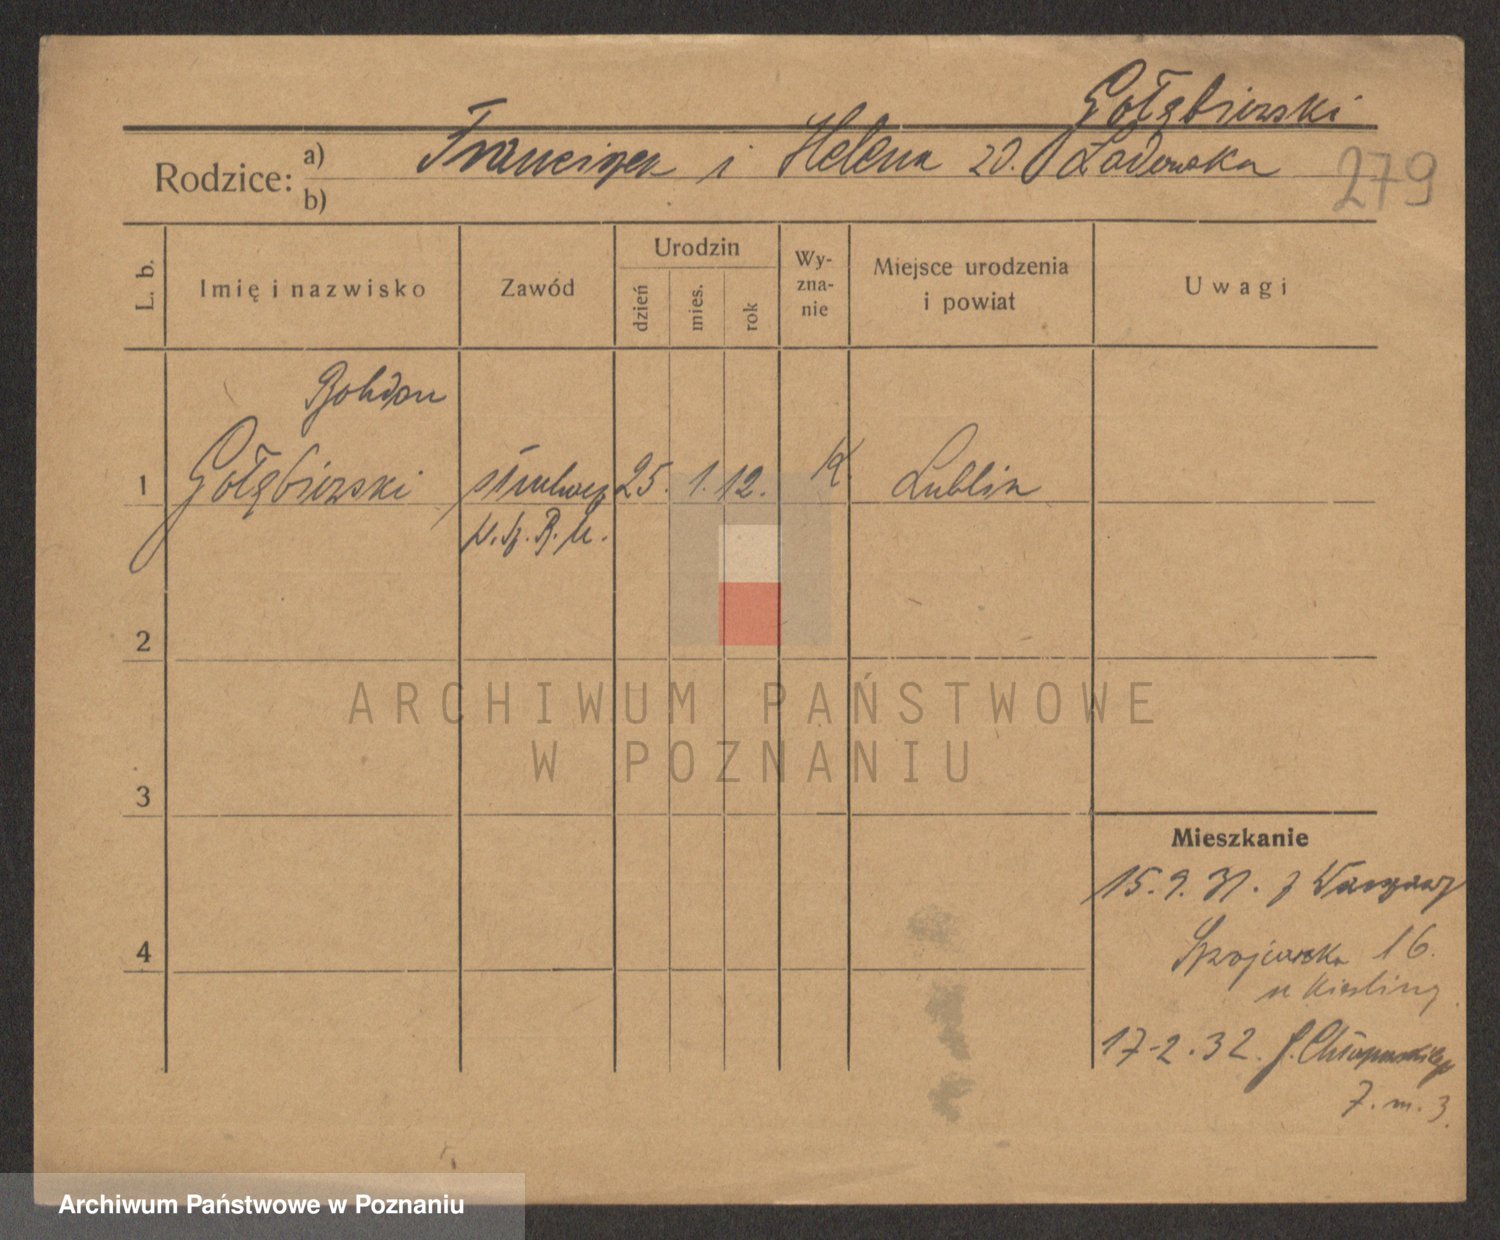 Gołębiewski
Rodzice: a) Franciszek i Helena zd. Ladowska
b)
279
L. b.
Imię i nazwisko
Zawód
Urodzin
dzień
mies.
rok
Wy-
zna-
nie
Miejsce urodzenia
i powiat
Uwagi
Bohdan
1 Gołębiewski 25. 1. 12. K. Lublin
2
3
4
ARCHIWUM PAŃSTWOWE
W POZNANIU
Mieszkanie
15.9.31. z Warszawy
16.
u Kiesling
17-2.32.
7. m. 3.
Archiwum Państwowe w Poznaniu